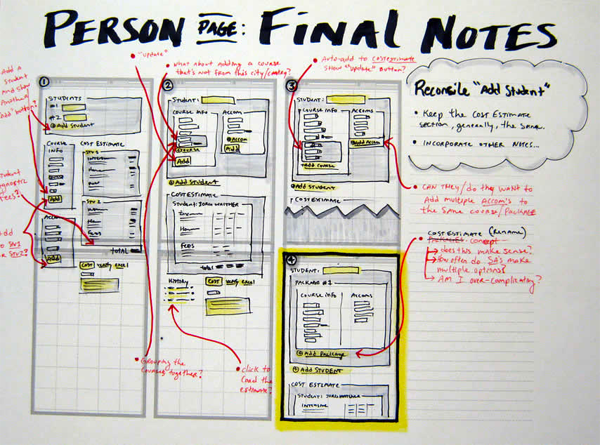 PERSON PAGE: FINAL NOTES
"update"
What about adding a course
that's not from this city/country?
Auto-add to cost estimate
show "update" button?
Add a
student
and show
another
"Add" button?
1
STUDENTS
#1
#2
Add Student
Course
Info
COST ESTIMATE
STU 1
Add
STU 2
Accom
Add
TOTAL
COST
verify email
Student
fees?
Add
to STU 1
& STU 2?
2
STUDENT:
Course
Info
Accoms
Accom
Add
Add
Add Student
COST ESTIMATE
Student:
Fees
Total
History
COST
verify email
Grouping the
courses together?
click to
load the
estimate?
3
STUDENT:
Course Info
Accoms
Add Accom
Add Course
Add Student
COST ESTIMATE
4
STUDENT:
PACKAGE #1
COURSE INFO
ACCOMS
Add Package
Add STUDENT
COST ESTIMATE
STUDENT:
Reconcile "Add Student"
• Keep the Cost Estimate
section, generally, the same.
• INCORPORATE OTHER NOTES...
• CAN THEY/do they WANT to
Add multiple Accom's to
the same course/package
COST ESTIMATE (Rename)
concept
does this make sense?
How often do SA's make
multiple options?
Am I over-complicating?